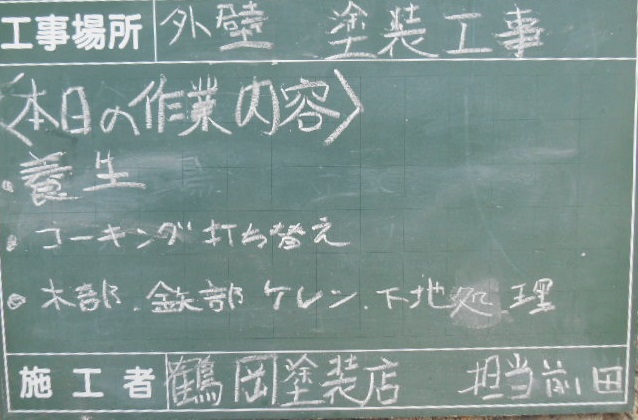 工事場所 外壁 塗装工事
〈本日の作業内容〉
・養生
・コーキング打ち替え
・木部.鉄部 ケレン.下地処理
施工者 鶴岡塗装店 担当前田